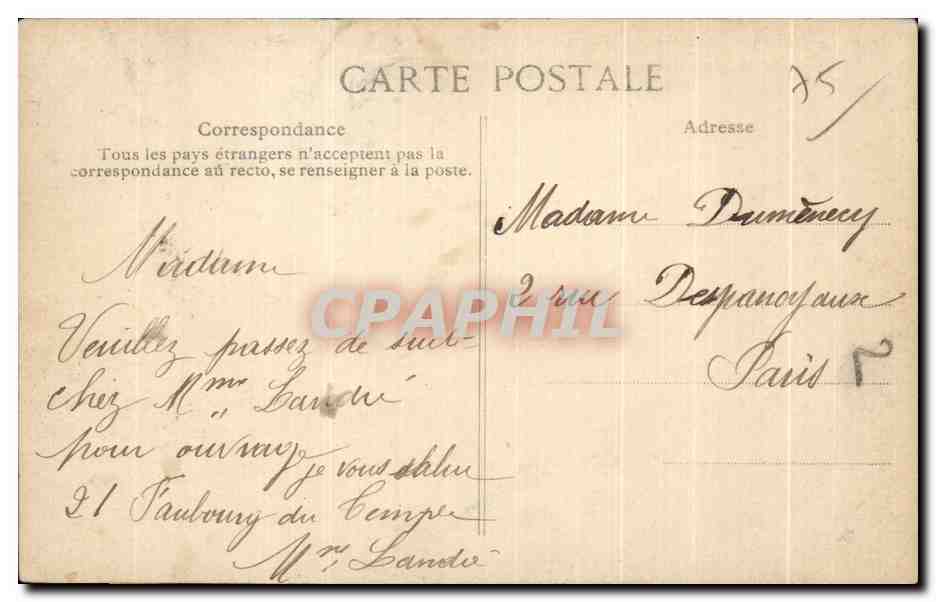 CARTE POSTALE
75
Correspondance
Tous les pays étrangers n'acceptent pas la
correspondance au recto, se renseigner à la poste.
Adresse
Madame Dumènecy
2 rue Despanoyaux
Paris
Madame
Veuillez passez de suit
chez Mme Landré
pour ouvrage
je vous salue
21 Faubourg du Temple
Mme Landré
CPAPHIL